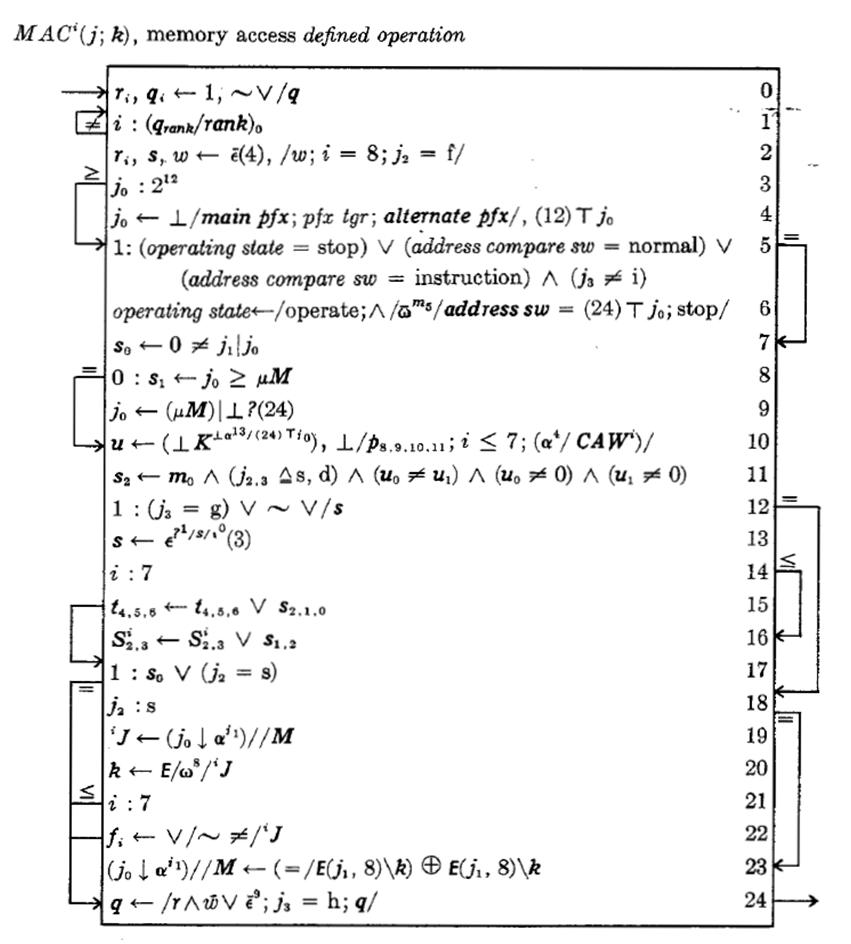 MACⁱ(j; k), memory access defined operation
rᵢ, qᵢ ← 1, ∼∨/q 0
≠ i : (q_rank/rank)₀ 1
rᵢ, s, w ← ε̄(4), /w; i = 8; j₂ = f/ 2
≥ j₀ : 2¹² 3
j₀ ← ⊥/main pfx; pfx tgr; alternate pfx/, (12)⊤j₀ 4
1: (operating state = stop) ∨ (address compare sw = normal) ∨ 5 =
(address compare sw = instruction) ∧ (j₃ ≠ i)
operating state←/operate;∧/ω̄^m₅/address sw = (24)⊤j₀; stop/ 6
s₀ ← 0 ≠ j₁|j₀ 7
= 0 : s₁ ← j₀ ≥ μM 8
j₀ ← (μM)|⊥?(24) 9
u ← (⊥K^⊥α¹³/(24)⊤j₀), ⊥/p₈,₉,₁₀,₁₁; i ≤ 7; (α⁴/CAWⁱ)/ 10
s₂ ← m₀ ∧ (j₂,₃ ≙ s, d) ∧ (u₀ ≠ u₁) ∧ (u₀ ≠ 0) ∧ (u₁ ≠ 0) 11
1 : (j₃ = g) ∨ ∼ ∨/s 12 =
s ← ϵ^?¹/s/ι⁰(3) 13
i : 7 14 ≤
t₄,₅,₆ ← t₄,₅,₆ ∨ s₂,₁,₀ 15
Sⁱ₂,₃ ← Sⁱ₂,₃ ∨ s₁,₂ 16
1 : s₀ ∨ (j₂ = s) 17
= j₂ : s 18
ⁱJ ← (j₀ ↓ α^j₁)//M 19 =
k ← E/ω⁸/ⁱJ 20
≤ i : 7 21
fᵢ ← ∨/∼ ≠/ⁱJ 22
(j₀ ↓ α^j₁)//M ← (=/E(j₁, 8)\k) ⊕ E(j₁, 8)\k 23
q ← /r∧w̄∨ ε̄⁹; j₃ = h; q/ 24